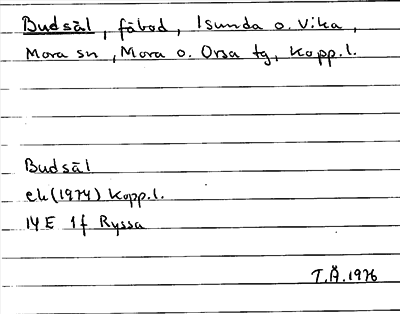 Budsäl, fäbod, Isunda o. Vika,
Mora sn, Mora o. Orsa tg, Kopp.l.
Budsäl
ek (1974) Kopp.l.
14E 1f Ryssa
T.Å. 1976